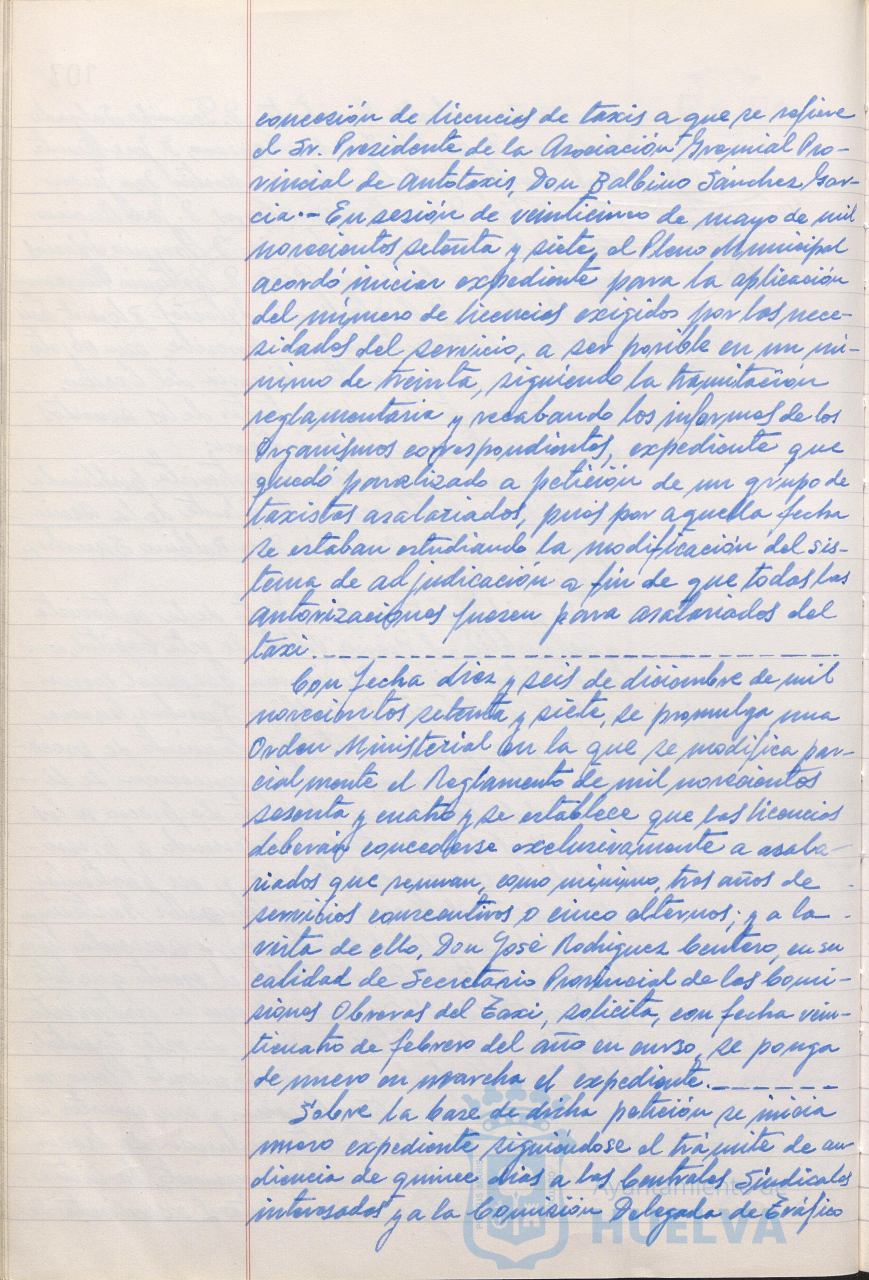 concesión de licencias de taxis a que se refiere
el Sr. Presidente de la Asociación Gremial Pro-
vincial de autotaxis, Don Balbino Sánchez Gar-
cia.- En sesión de veinticinco de mayo de mil
novecientos setenta y siete, el Pleno Municipal
acordó iniciar expediente para la aplicación
del número de licencias exigidos por las nece-
sidades del servicio, a ser posible en un mí-
nimo de treinta, siguiendo la tramitación
reglamentaria y recabando los informes de los
Organismos correspondientes, expediente que
quedó paralizado a petición de un grupo de
taxistas asalariados, pues por aquella fecha
se estaban estudiando la modificación del sis-
tema de adjudicación a fin de que todas las
autorizaciones fuesen para asalariados del
taxi.
Con fecha diez y seis de diciembre de mil
novecientos setenta y siete, se promulga una
Orden Ministerial en la que se modifica par-
cialmente el Reglamento de mil novecientos
sesenta y cuatro y se establece que las licencias
deberán concederse exclusivamente a asala-
riados que reunan, como mínimo, tres años de
servicios consecutivos o cinco alternos; y a la
vista de ello, Don José Rodríguez Centeno, en su
calidad de Secretario Provincial de las Comi-
siones Obreras del Taxi, solicita, con fecha vein-
ticuatro de febrero del año en curso, se ponga
de nuevo en marcha el expediente.
Sobre la base de dicha petición se inicia
nuevo expediente siguiendose el trámite de au-
diencia de quince días a las Centrales Sindicales
interesadas y a la Comisión Delegada de Tráfico
Ayuntamiento de
HUELVA